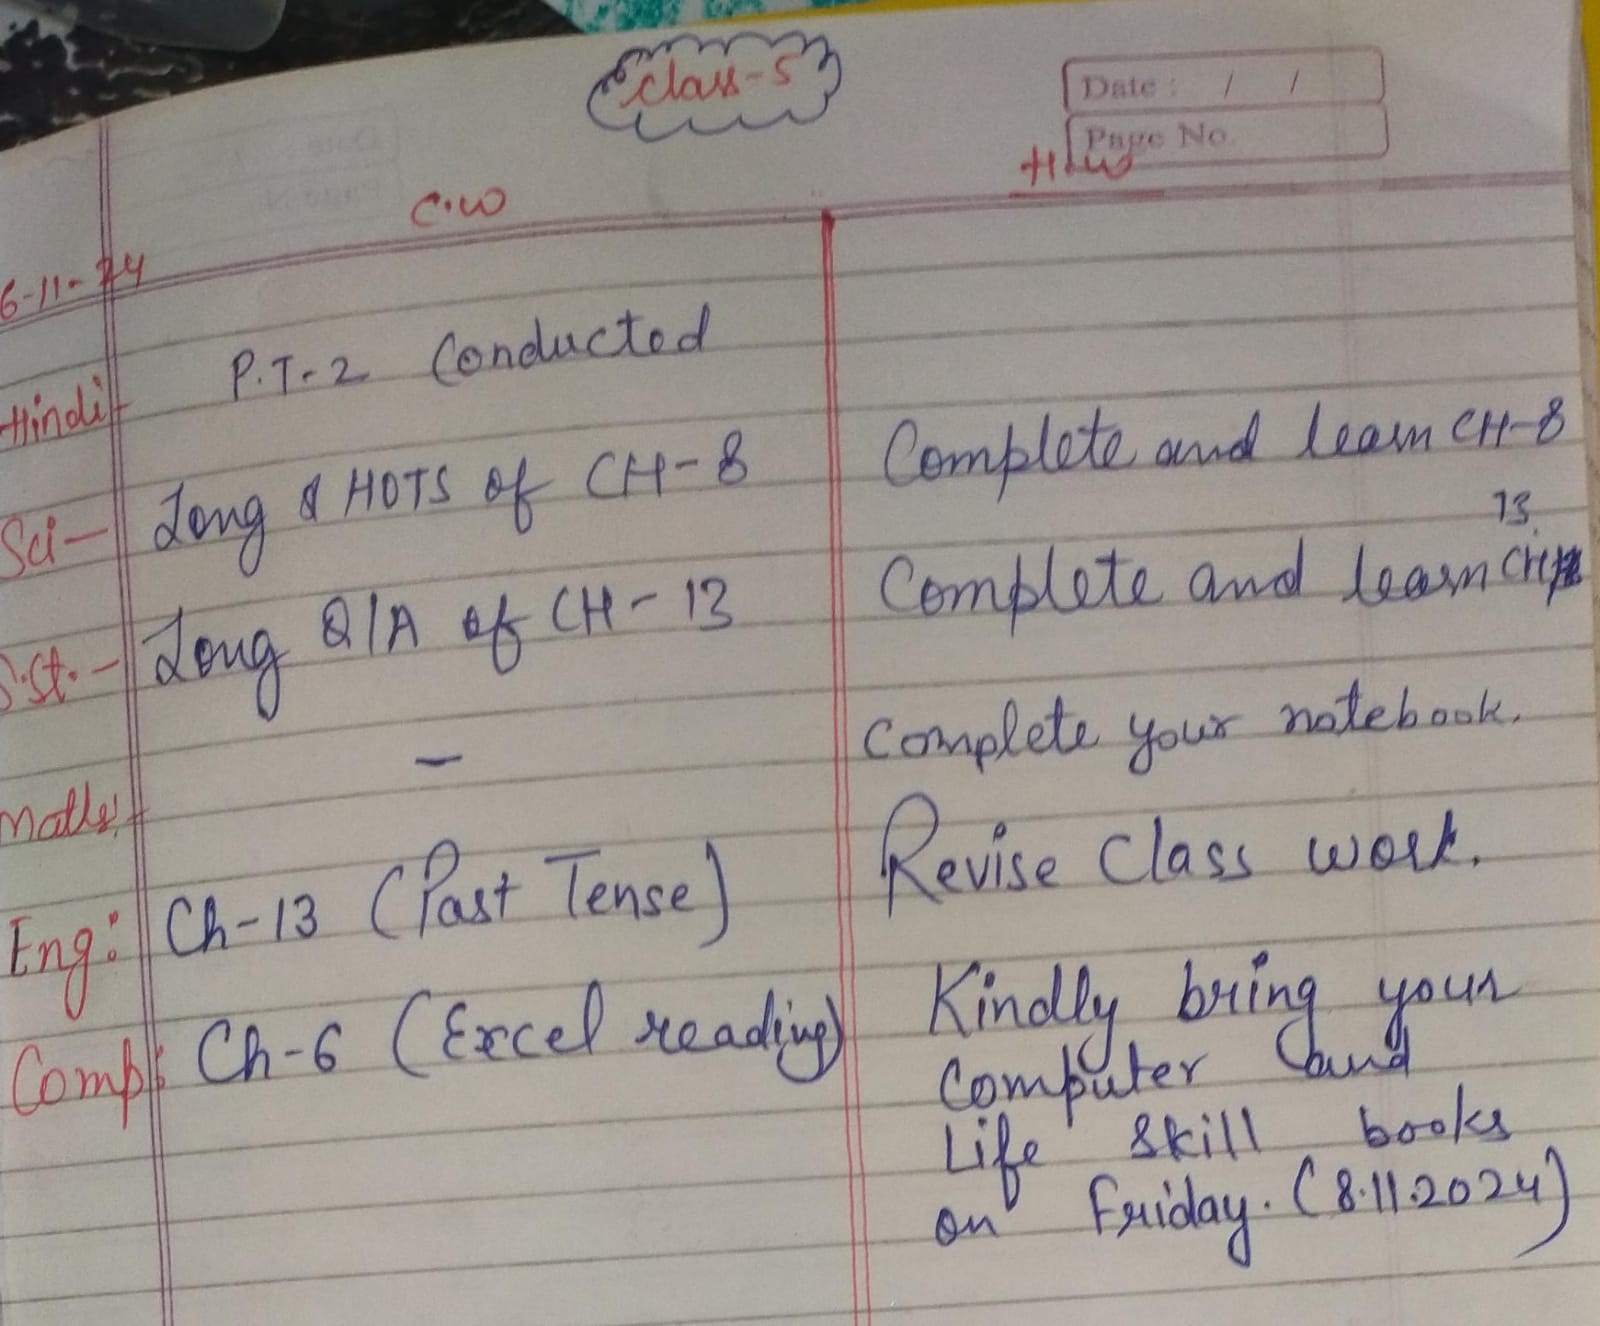 Class-5
Date : / /
Page No.
C.W
H.W
6-11-24
Hindi- P.T-2 Conducted
Sci- Long & HOTS of CH-8 Complete and learn CH-8
13
S.St.- Long Q/A of CH-13 Complete and learn CH-
Maths- - Complete your notebook.
Eng: Ch-13 (Past Tense) Revise Class work.
Comp: Ch-6 (Excel reading) Kindly bring your
Computer and
Life skill books
on Friday. (8.11.2024)